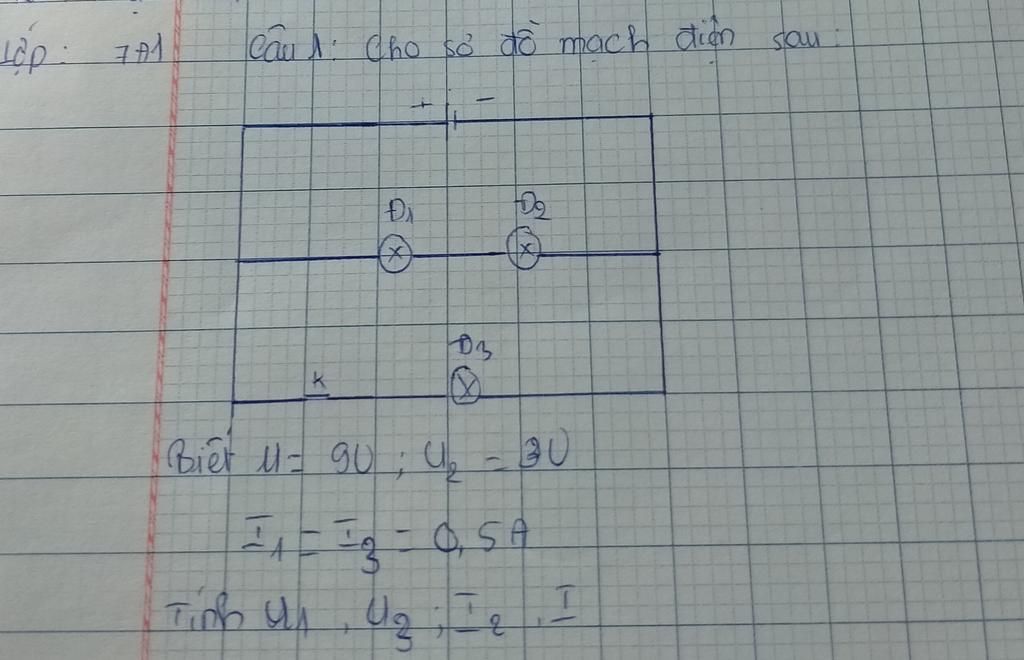 Lớp: 7A1
Câu 1: Cho sơ đồ mạch điện sau:
+ -
Đ1 Đ2
Đ3
K
Biết U = 9V ; U2 = 3V
I1 = I3 = 0,5A
Tính U1 , U3 ; I2 , I